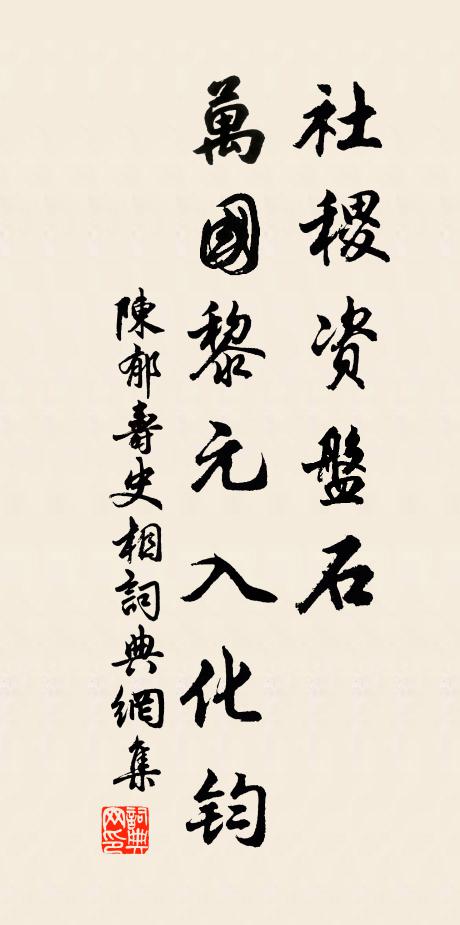 社稷资盤石
萬國黎元入化钧
陳郁壽史相詞典網集
詞典網印